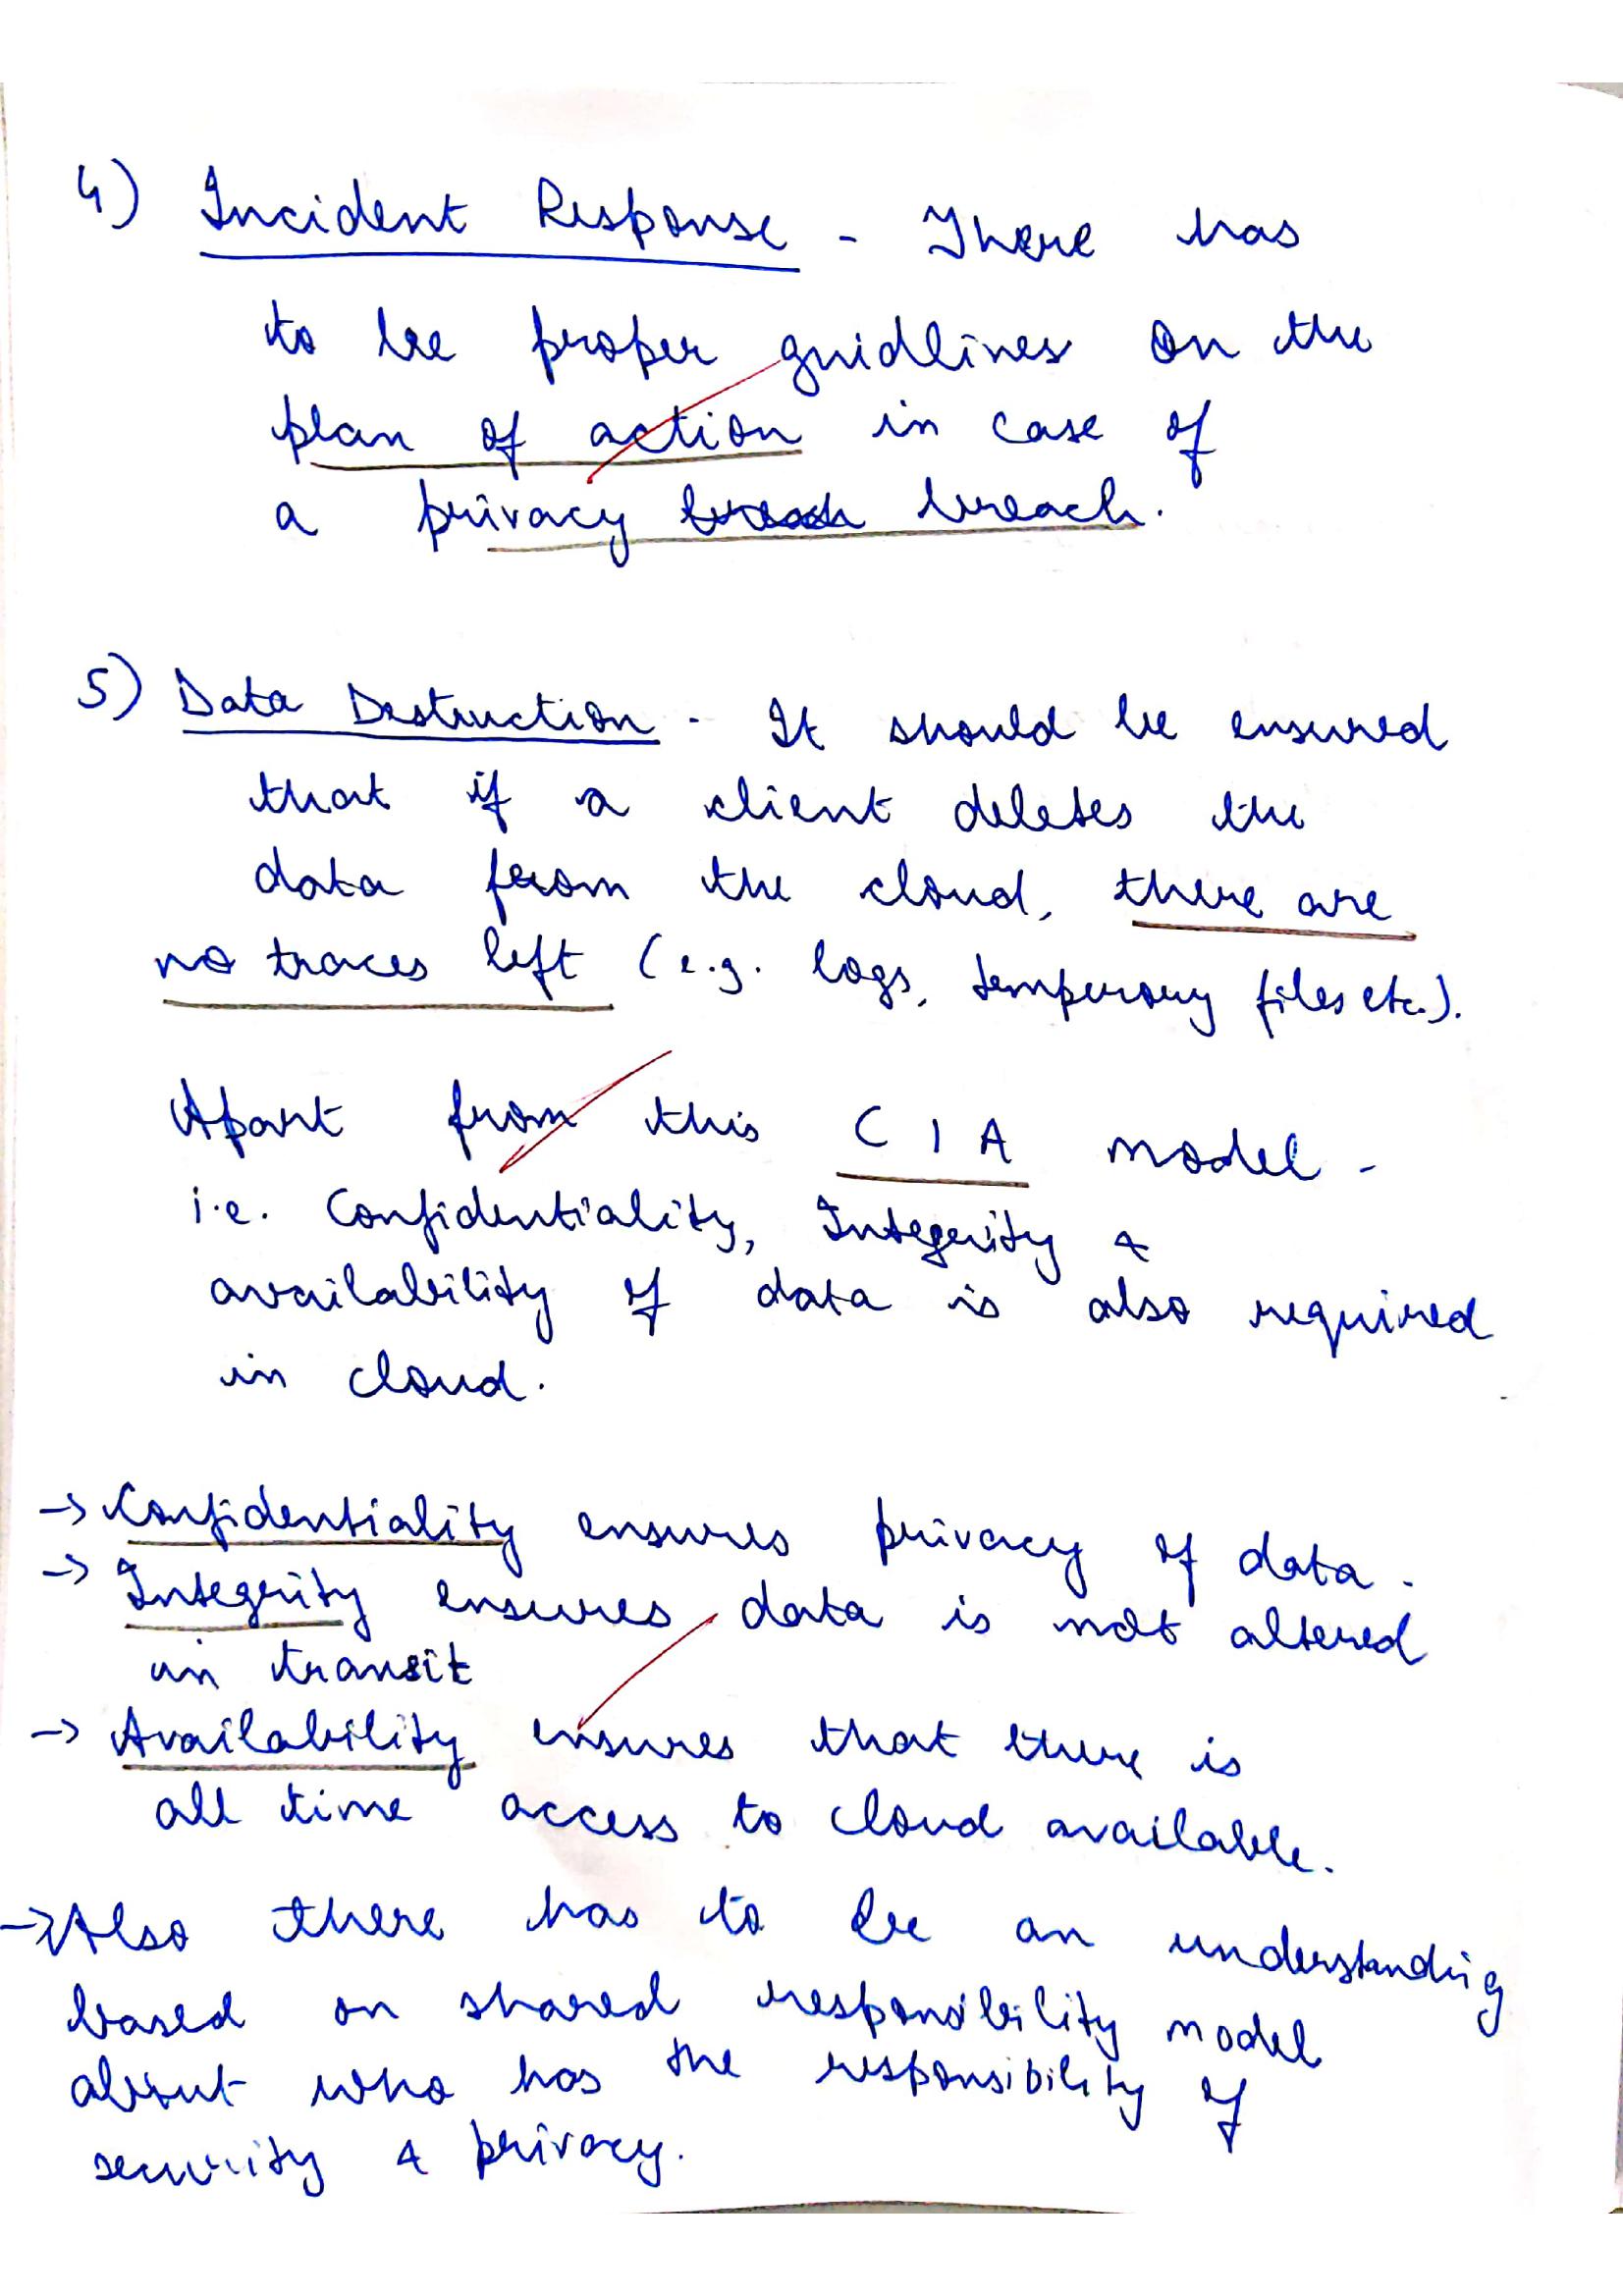 4) Incident Response - There has
to be proper guidlines on the
plan of action in case of
a privacy breach breach.
5) Data Destruction - It should be ensured
that if a client deletes the
data from the cloud, there are
no traces left (e.g. logs, temperory files etc.).
Apart from this C I A model -
i.e. Confidentiality, Integerity &
availability of data is also required
in cloud.
→ Confidentiality ensures privacy of data.
→ Integerity ensures data is not altered
in transit
→ Availability ensures that there is
all time access to cloud available.
→ Also there has to be an understanding
based on shared responsibility model
about who has the responsibility of
security & privacy.